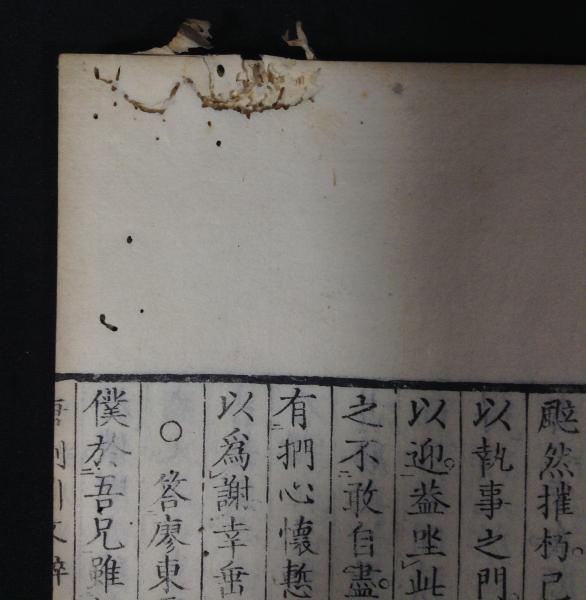 颭然摧朽。己
以執事之門。
以迎。益坐此
之不敢自盡。
有捫心懷慙
以爲謝幸垂
○答廖東
僕於吾兄雖